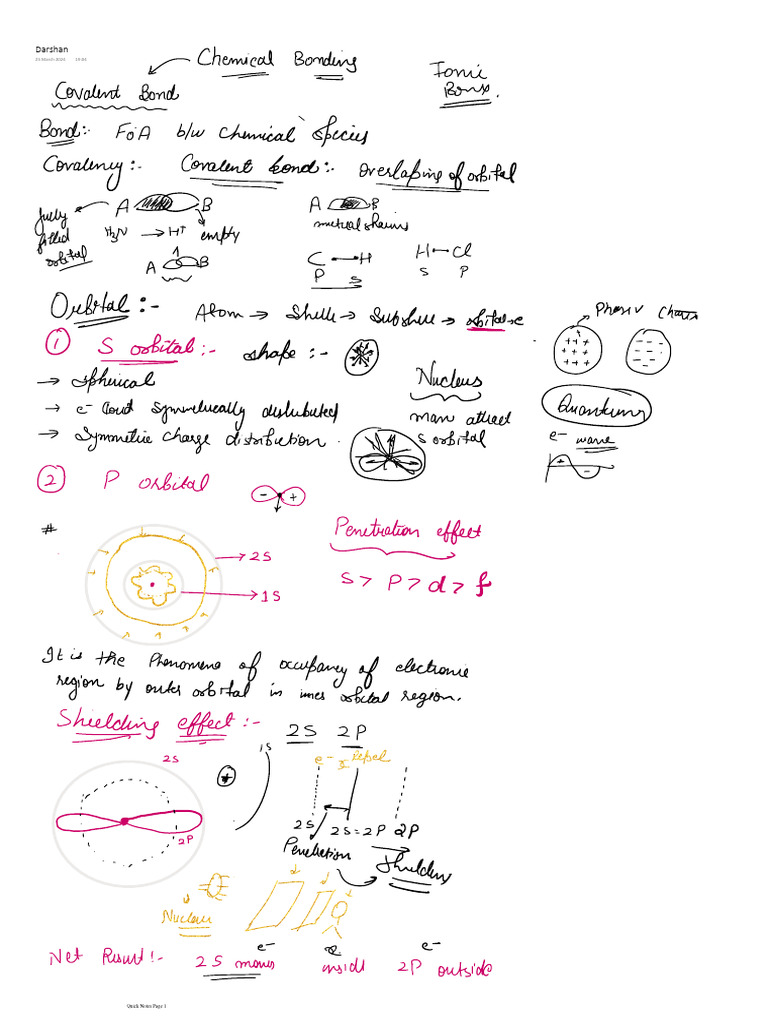 Darshan
Chemical Bonding
Covalent Bond
Ionic
Bond :- FOA b/w chemical species
Covalency :- Covalent bond :- overlaping of orbital
A B
A B
fully
filled
orbital
H3N → H+ empty
mutual
A B
C H
P S
H Cl
S P
Orbital :- Atom → Shell → Subshell → orbital
1 S orbital :- shape :-
+ + +
- - -
→ spherical
Nucleus
Quantum
→ e- symmetrically distributed
→ Symmetric charge distribution
attract
s orbital
e- wave
+ -
2 P orbital
- +
#
Penetration effect
2S
1S
S > P > d > f
It is the Phenomeno of occupancy of electronic
region by outer orbital in orbital region.
Shielding effect :-
2S 2P
1S
2S
e- Repel
+
2P
2S 2S = 2P 2P
Penetration
Nucleus
Net Result :- 2S e- moves 2P e- outside
Quick Notes Page 1